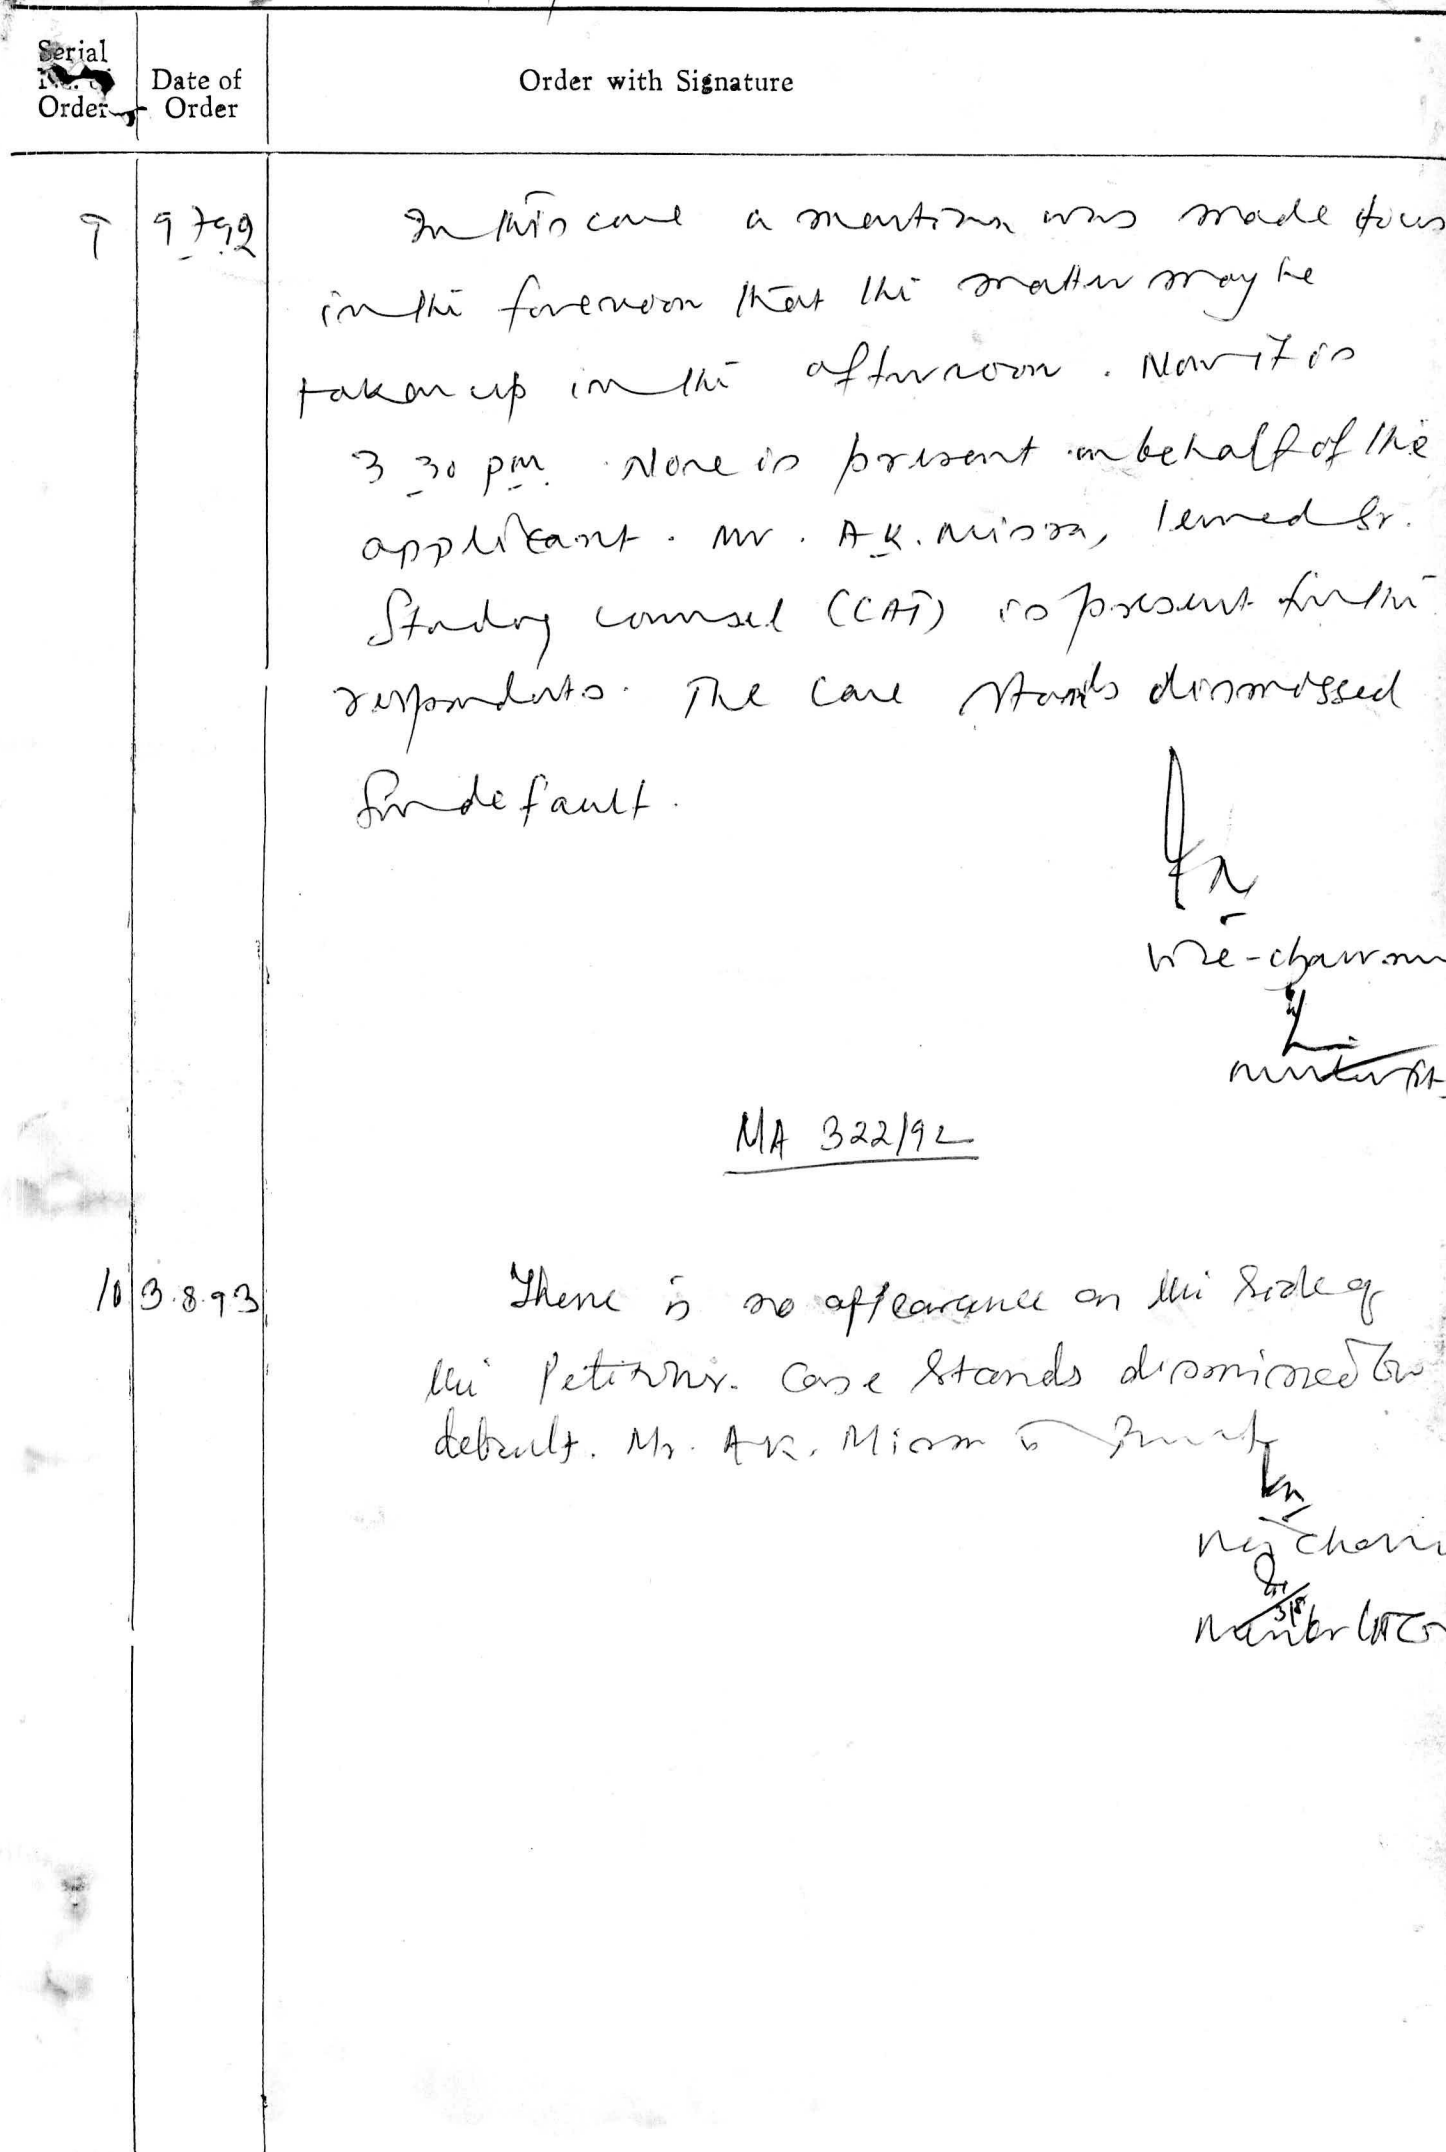 Serial
No. of
Order
Date of
Order
Order with Signature
9 9.7.92 In this case a mention was made to us
in the forenoon that the matter may be
taken up in the afternoon. Now it is
3.30 p.m. None is present on behalf of the
applicant. Mr. A.K. Misra, learned Sr.
Standing counsel (CAT) is present for the
respondents. The case stands dismissed
for default.
Vice-chairman
MA 322/92
10 3.8.93 There is no appearance on the side of
the Petitioner. Case stands dismissed for
default. Mr. A.K. Misra is present
Vice Chairm
3/8
Member